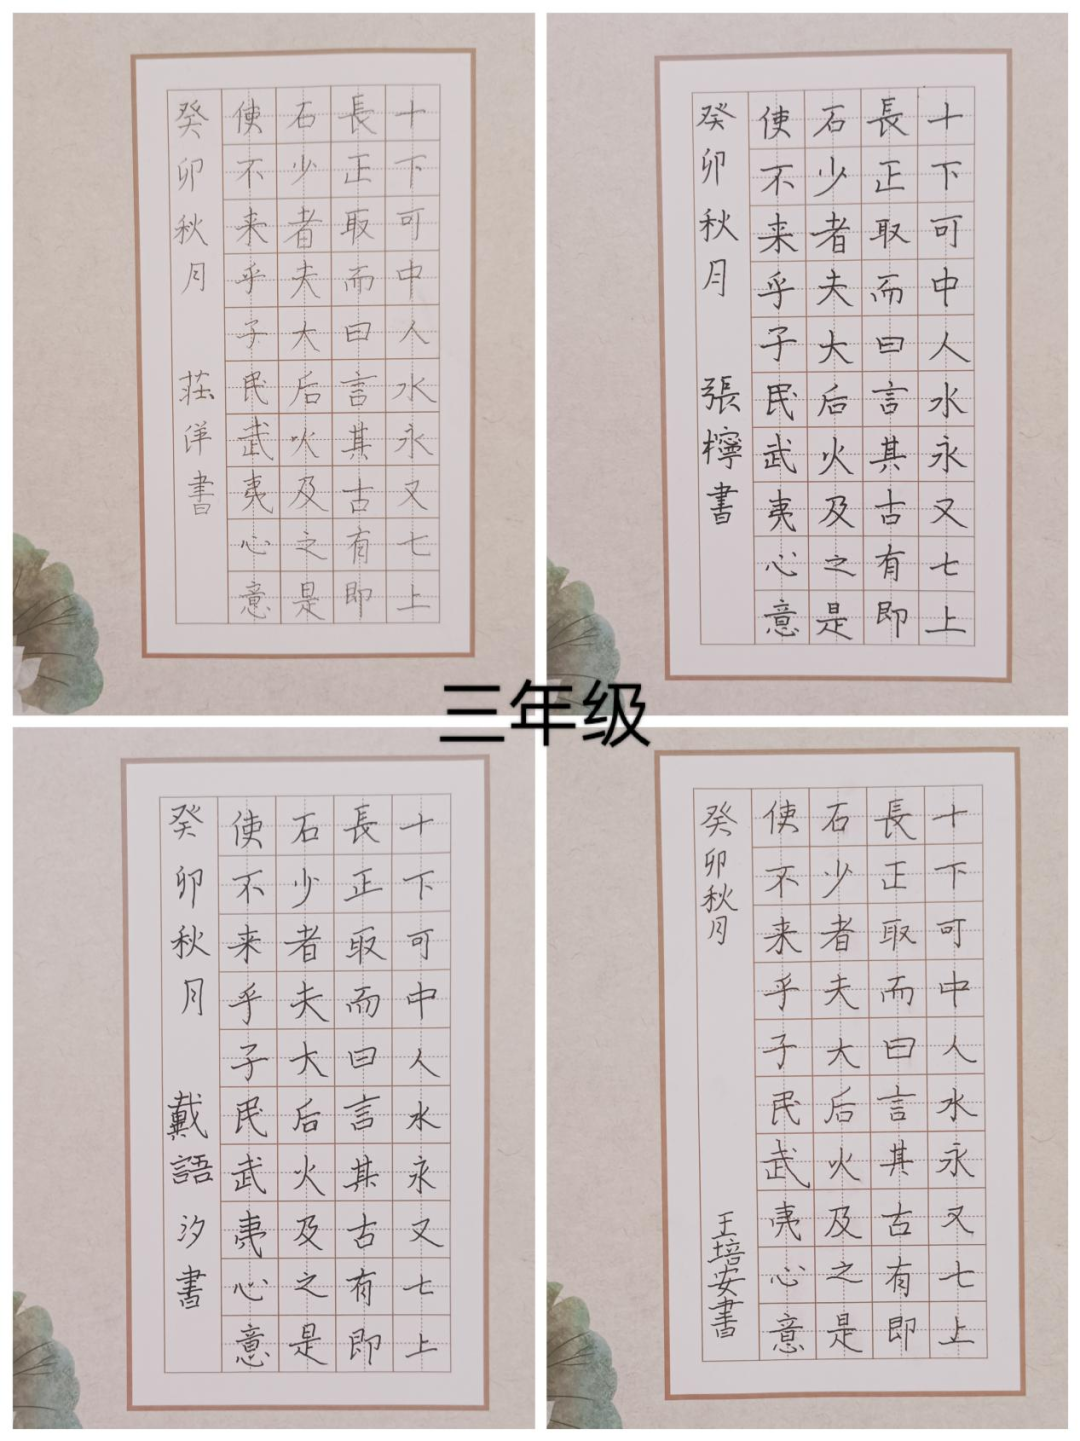 十下可中人水永又七上
長正取而曰言其古有即
石少者夫大后火及之是
使不来乎子民武夷心意
癸卯秋月 莊洋書
十下可中人水永又七上
長正取而曰言其古有即
石少者夫大后火及之是
使不来乎子民武夷心意
癸卯秋月 張檸書
三年级
十下可中人水永又七上
長正取而曰言其古有即
石少者夫大后火及之是
使不来乎子民武夷心意
癸卯秋月 戴語汐書
十下可中人水永又七上
長正取而曰言其古有即
石少者夫大后火及之是
使不来乎子民武夷心意
癸卯秋月 王培安書